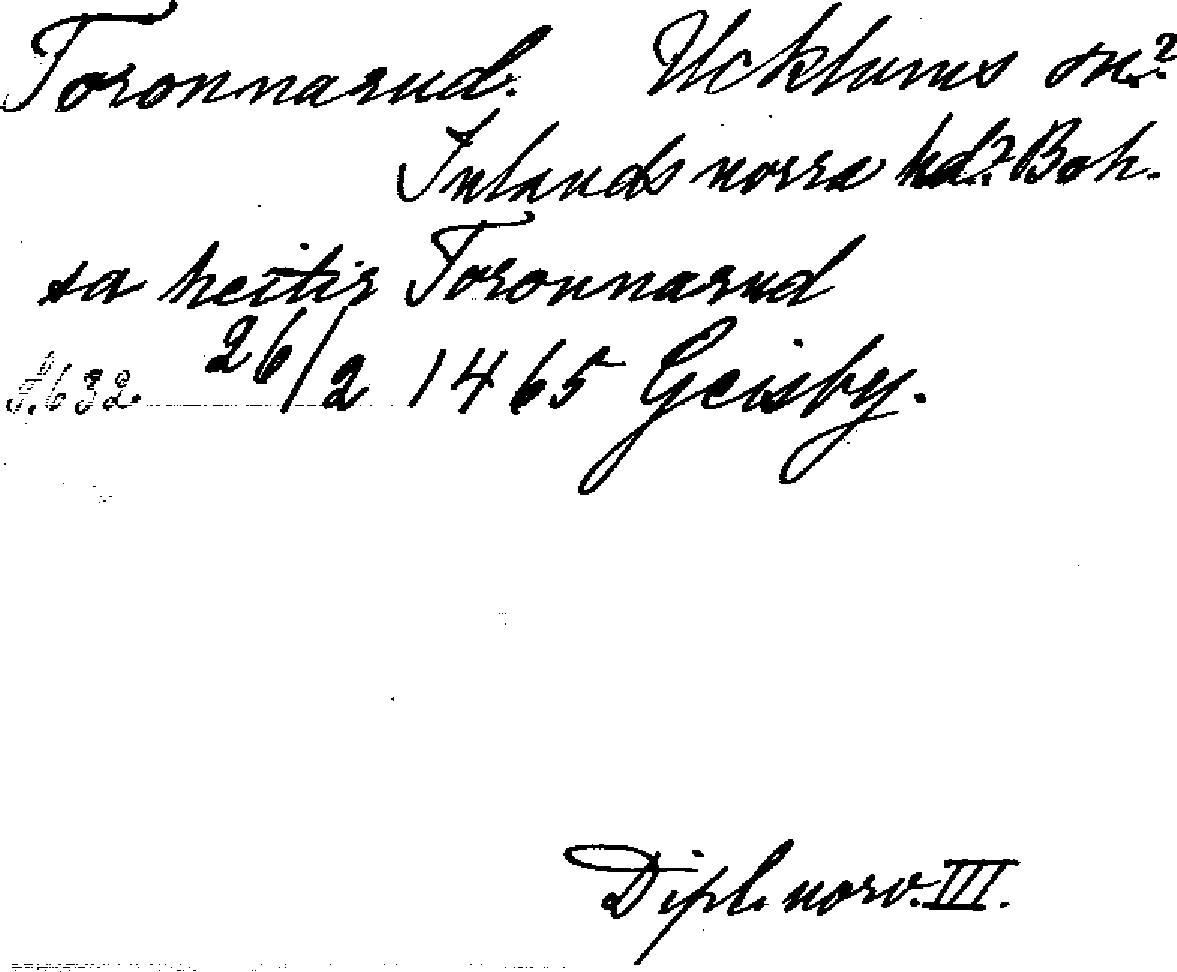 Toronnarud. Ucklums sn?
Inlands norra hd? Boh.
sa heitir Toronnarud
s. 632. 26/2 1465 Geisby.
Dipl. norv. III.